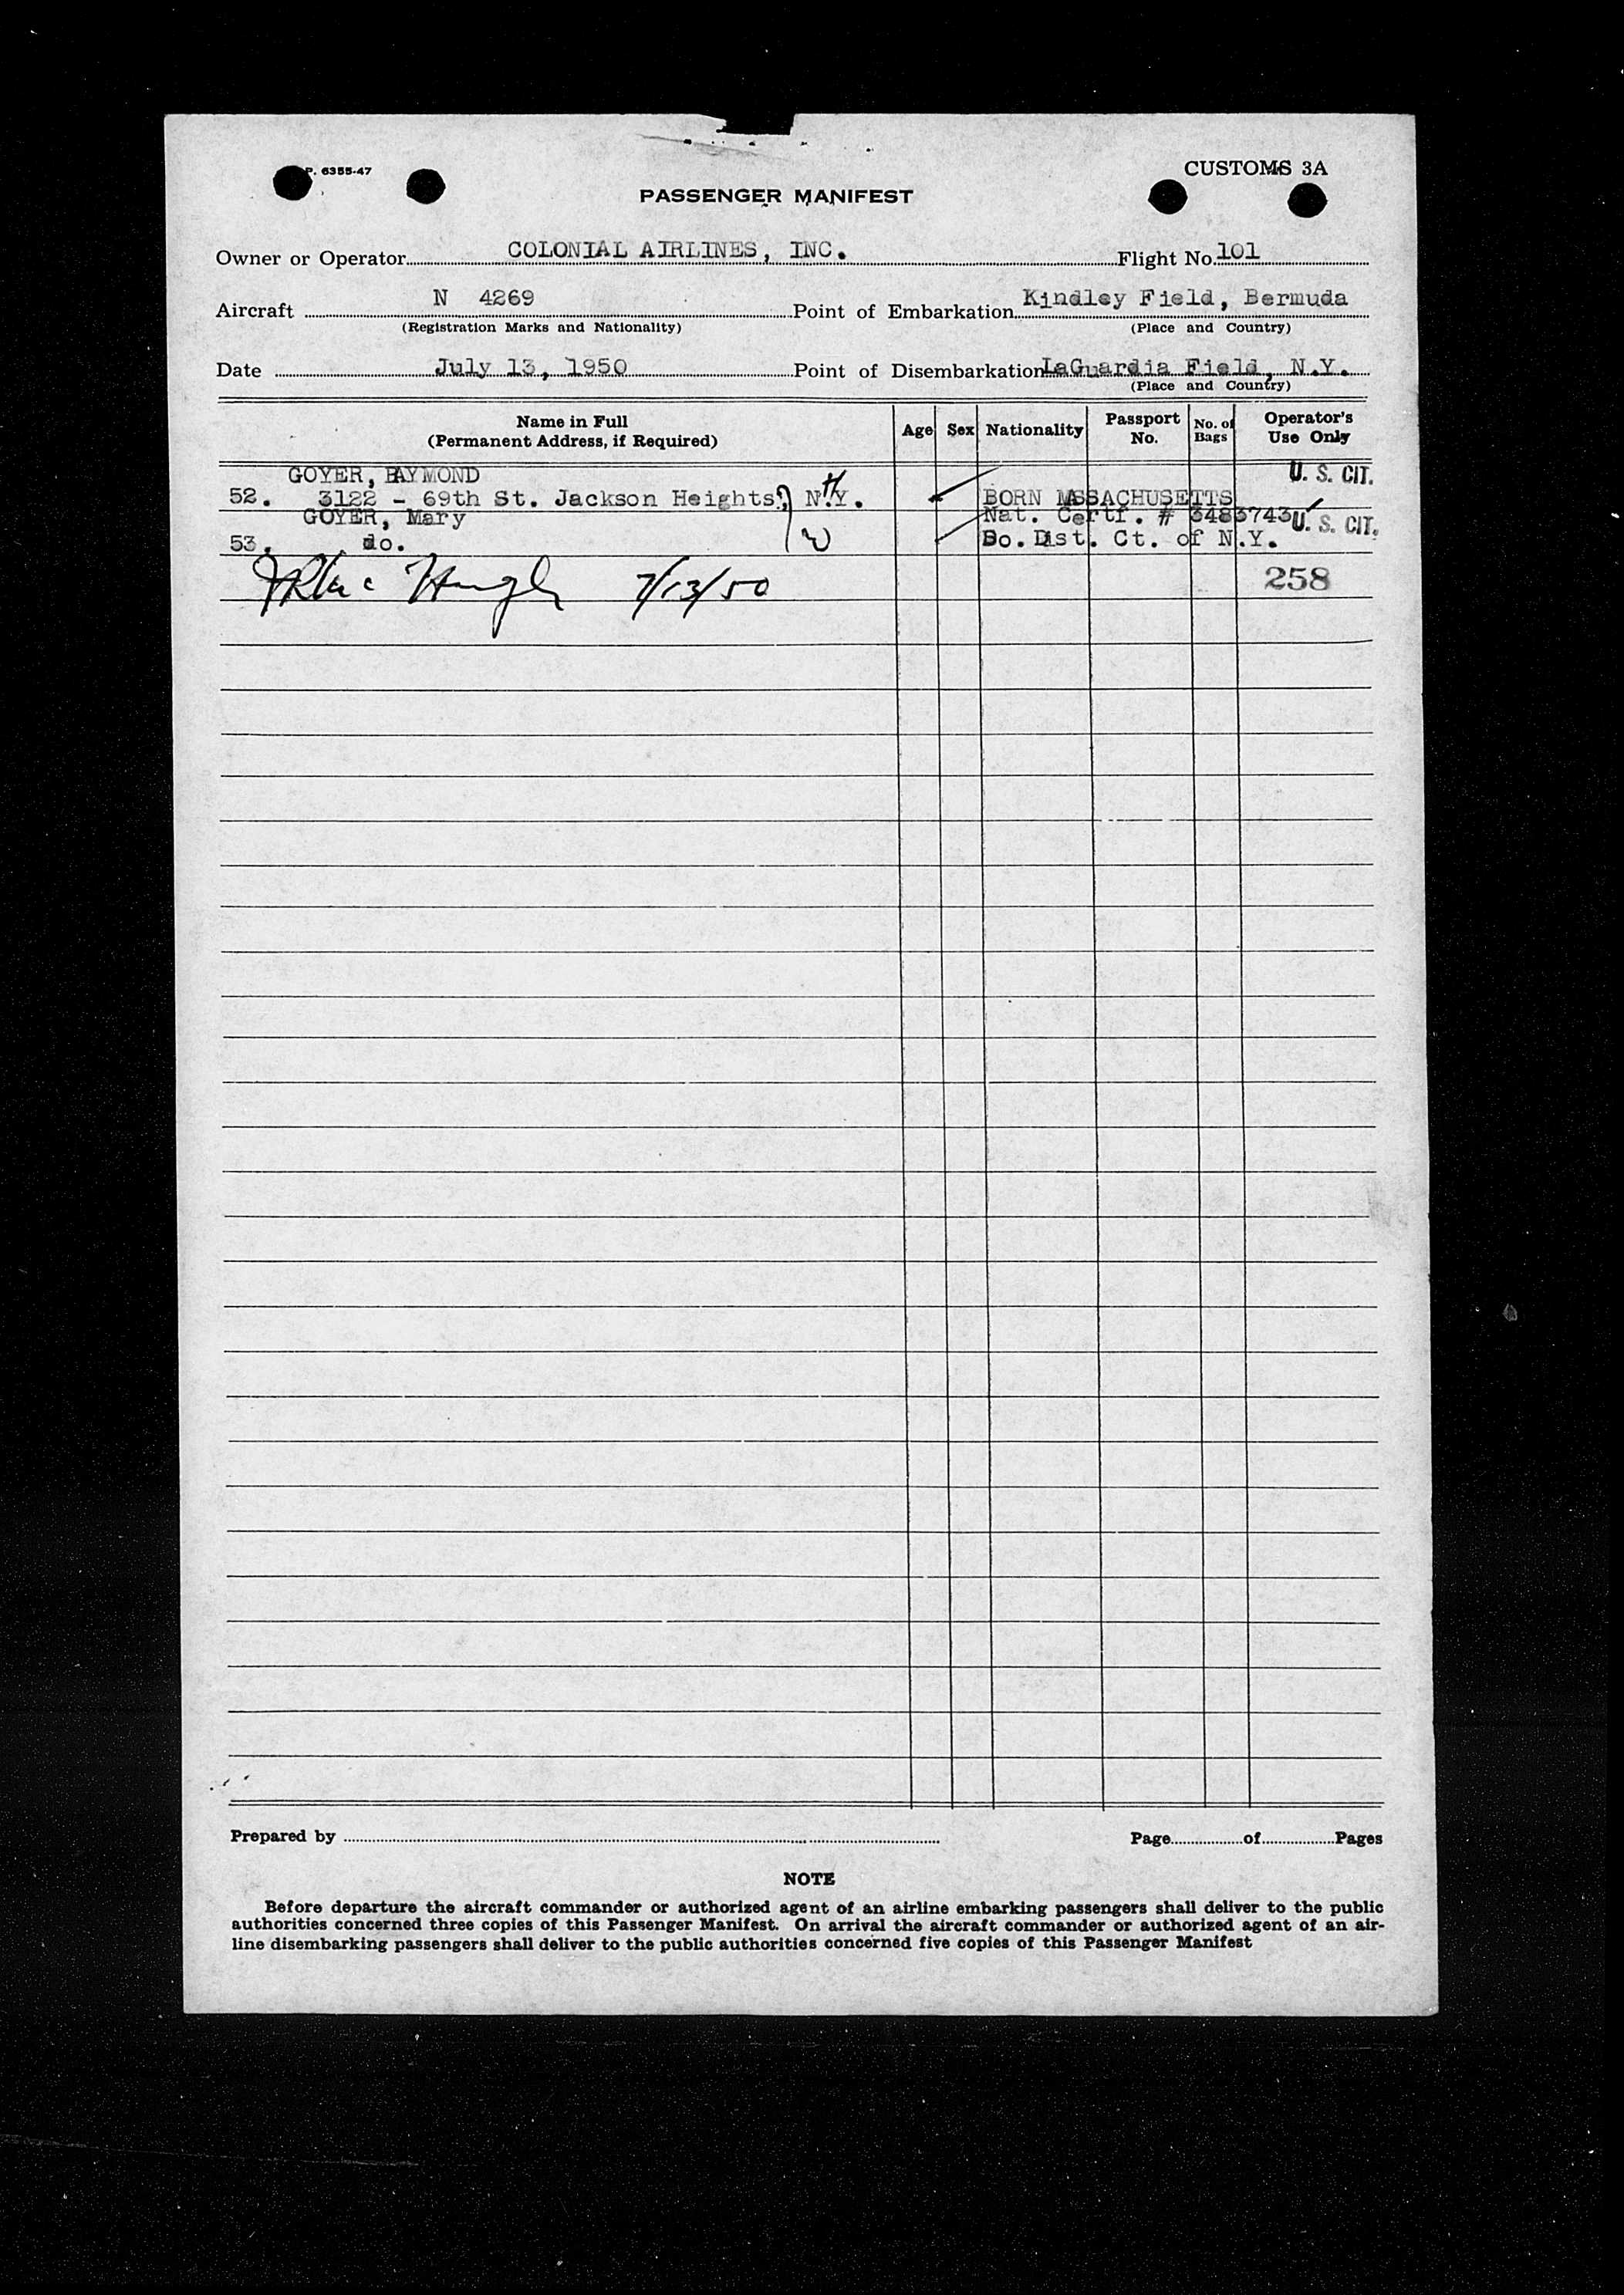 P. 6355-47
CUSTOMS 3A
PASSENGER MANIFEST
Owner or Operator COLONIAL AIRLINES, INC. Flight No. 101
Aircraft N 4269 Point of Embarkation Kindley Field, Bermuda
(Registration Marks and Nationality) (Place and Country)
Date July 13, 1950 Point of Disembarkation LaGuardia Field, N.Y.
(Place and Country)
Name in Full (Permanent Address, if Required) Age Sex Nationality Passport No. No. of Bags Operator's Use Only
GOYER, RAYMOND U. S. CIT.
52. 3122 - 69th St. Jackson Heights, N.Y. H BORN MASSACHUSETTS
GOYER, Mary Nat. Certf. # 3483743 U. S. CIT.
53. do. W So. Dist. Ct. of N.Y.
7/13/50 258
Prepared by Page of Pages
NOTE
Before departure the aircraft commander or authorized agent of an airline embarking passengers shall deliver to the public
authorities concerned three copies of this Passenger Manifest. On arrival the aircraft commander or authorized agent of an air-
line disembarking passengers shall deliver to the public authorities concerned five copies of this Passenger Manifest